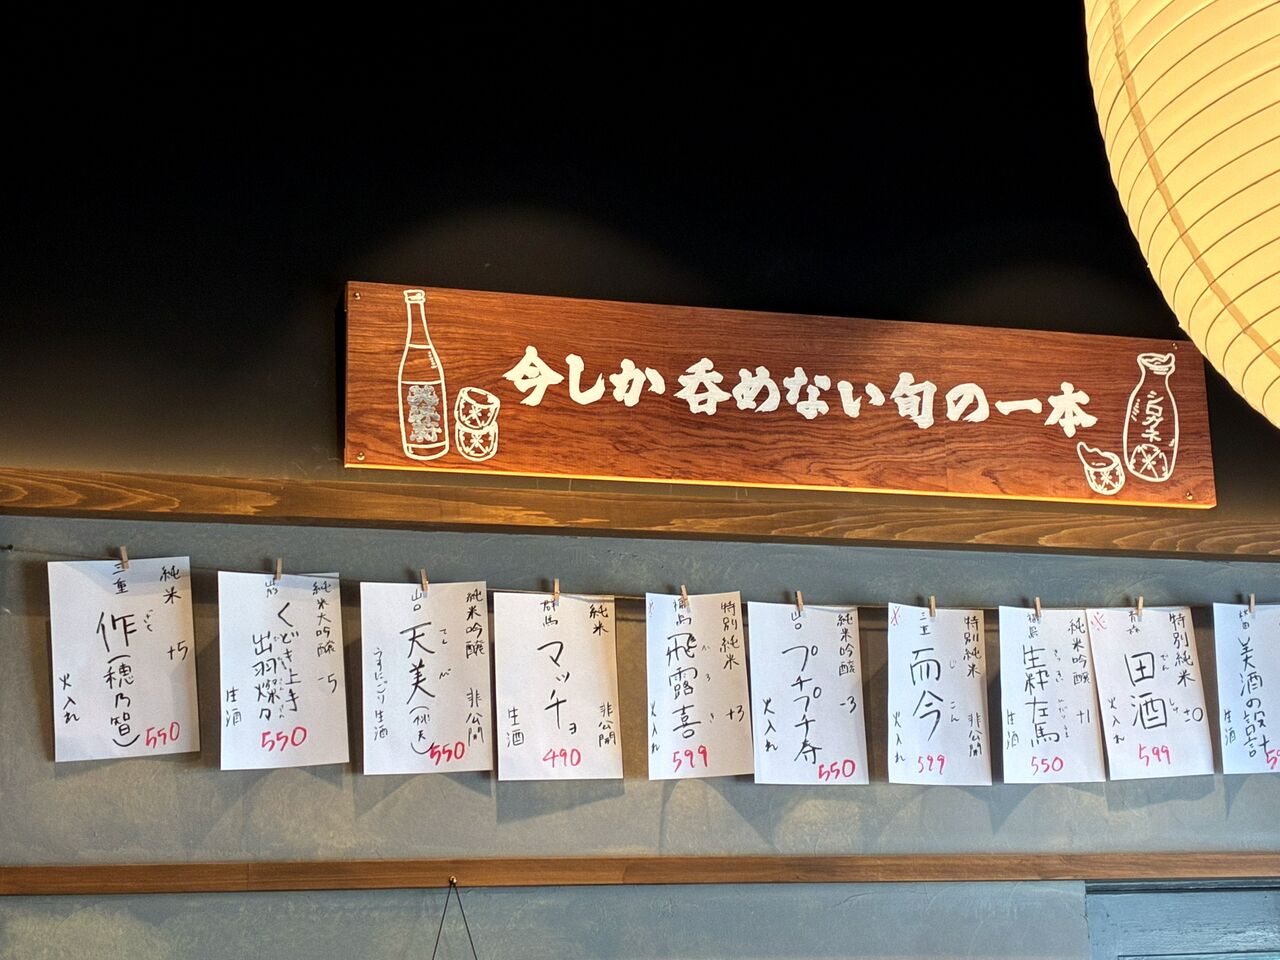 今しか呑めない旬の一本
シログネ
三重
純米
作(穂乃智)
+5
火入れ
550
山形
純米大吟醸
くどき上手
出羽燦々
-5
生酒
550
山口
純米吟醸
天美(秋天)
てんび
非公開
うすにごり生酒
550
群馬
純米
マッチョ
非公開
生酒
490
福島
特別純米
飛露喜
ひろき
+3
火入れ
599
山口
純米吟醸
プチプチ寿
-3
火入れ
550
三重
特別純米
而今
じこん
非公開
火入れ
599
福島
純米吟醸
生粋左馬
+1
生酒
550
青森
特別純米
田酒
でんしゅ
±0
火入れ
599
美酒の設計
生酒